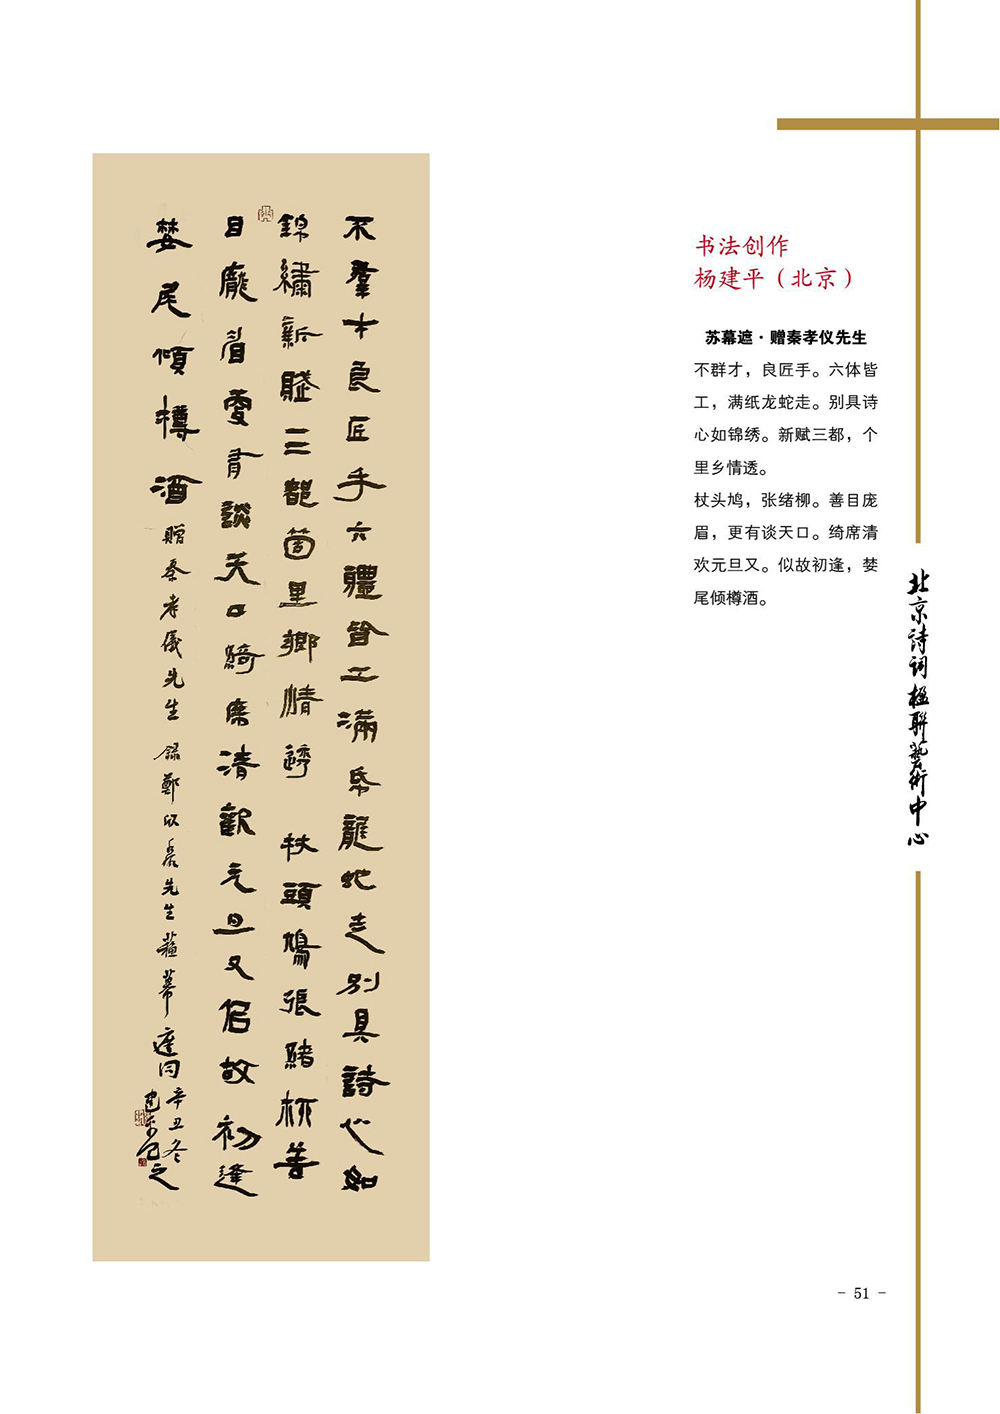 不羣才良匠手六體皆工滿帋龍蛇走別具詩心如
錦繡新賦三都箇里鄉情透 杖頭鳩張緒柳善
目龐眉更有談天口綺席清歡元旦又侣故初逢
婪尾傾樽酒
贈秦孝儀先生 錄鄭欣淼先生蘇幕遮詞
辛丑冬
书法创作
杨建平（北京）
苏幕遮·赠秦孝仪先生
不群才，良匠手。六体皆
工，满纸龙蛇走。别具诗
心如锦绣。新赋三都，个
里乡情透。
杖头鸠，张绪柳。善目庞
眉，更有谈天口。绮席清
欢元旦又。似故初逢，婪
尾倾樽酒。
北京詩詞楹聯藝術中心
- 51 -